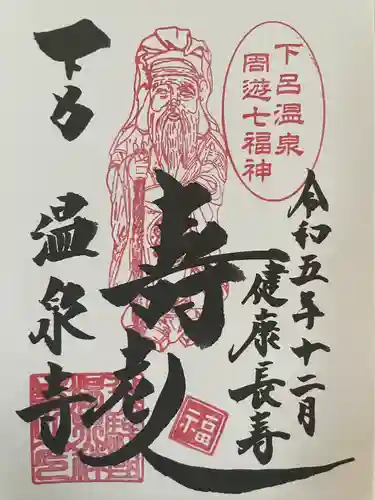 下呂温泉
周遊七福神
令和五年十二月
健康長寿
寿老人
下呂
温泉寺
福